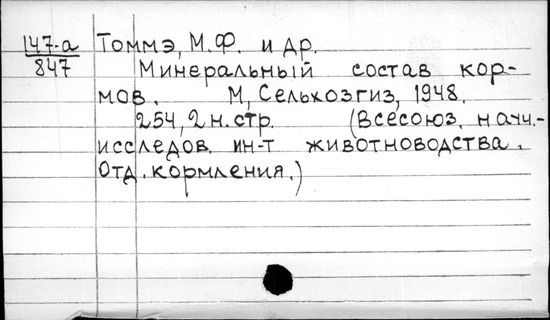 147-а
847
Томмэ, М.Ф. и др.
Минеральный состав кор-
мов. М, Сельхозгиз, 1948.
254, 2 н. стр. (Всесоюз. науч.-
исследов. ин-т животноводства.
Отд. кормления.)